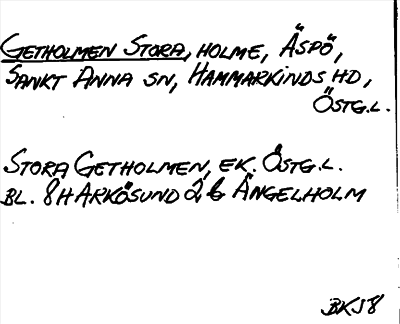 GETHOLMEN STORA, HOLME, ÄSPÖ,
SANKT ANNA SN, HAMMARKINDS HD,
ÖSTG.L.
STORA GETHOLMEN, EK. ÖSTG.L.
BL. 8H ARKÖSUND 2 b ÄNGELHOLM
BKJ8